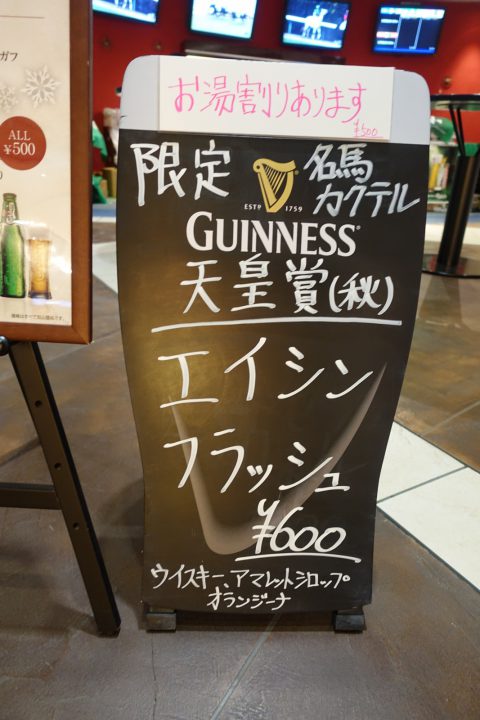 お湯割りあります
¥500
限定
名馬
カクテル
ESTD 1759
GUINNESS
天皇賞(秋)
エイシン
フラッシュ
¥600
ウイスキー、アマレットシロップ
オランジーナ
ガフ
ALL
¥500